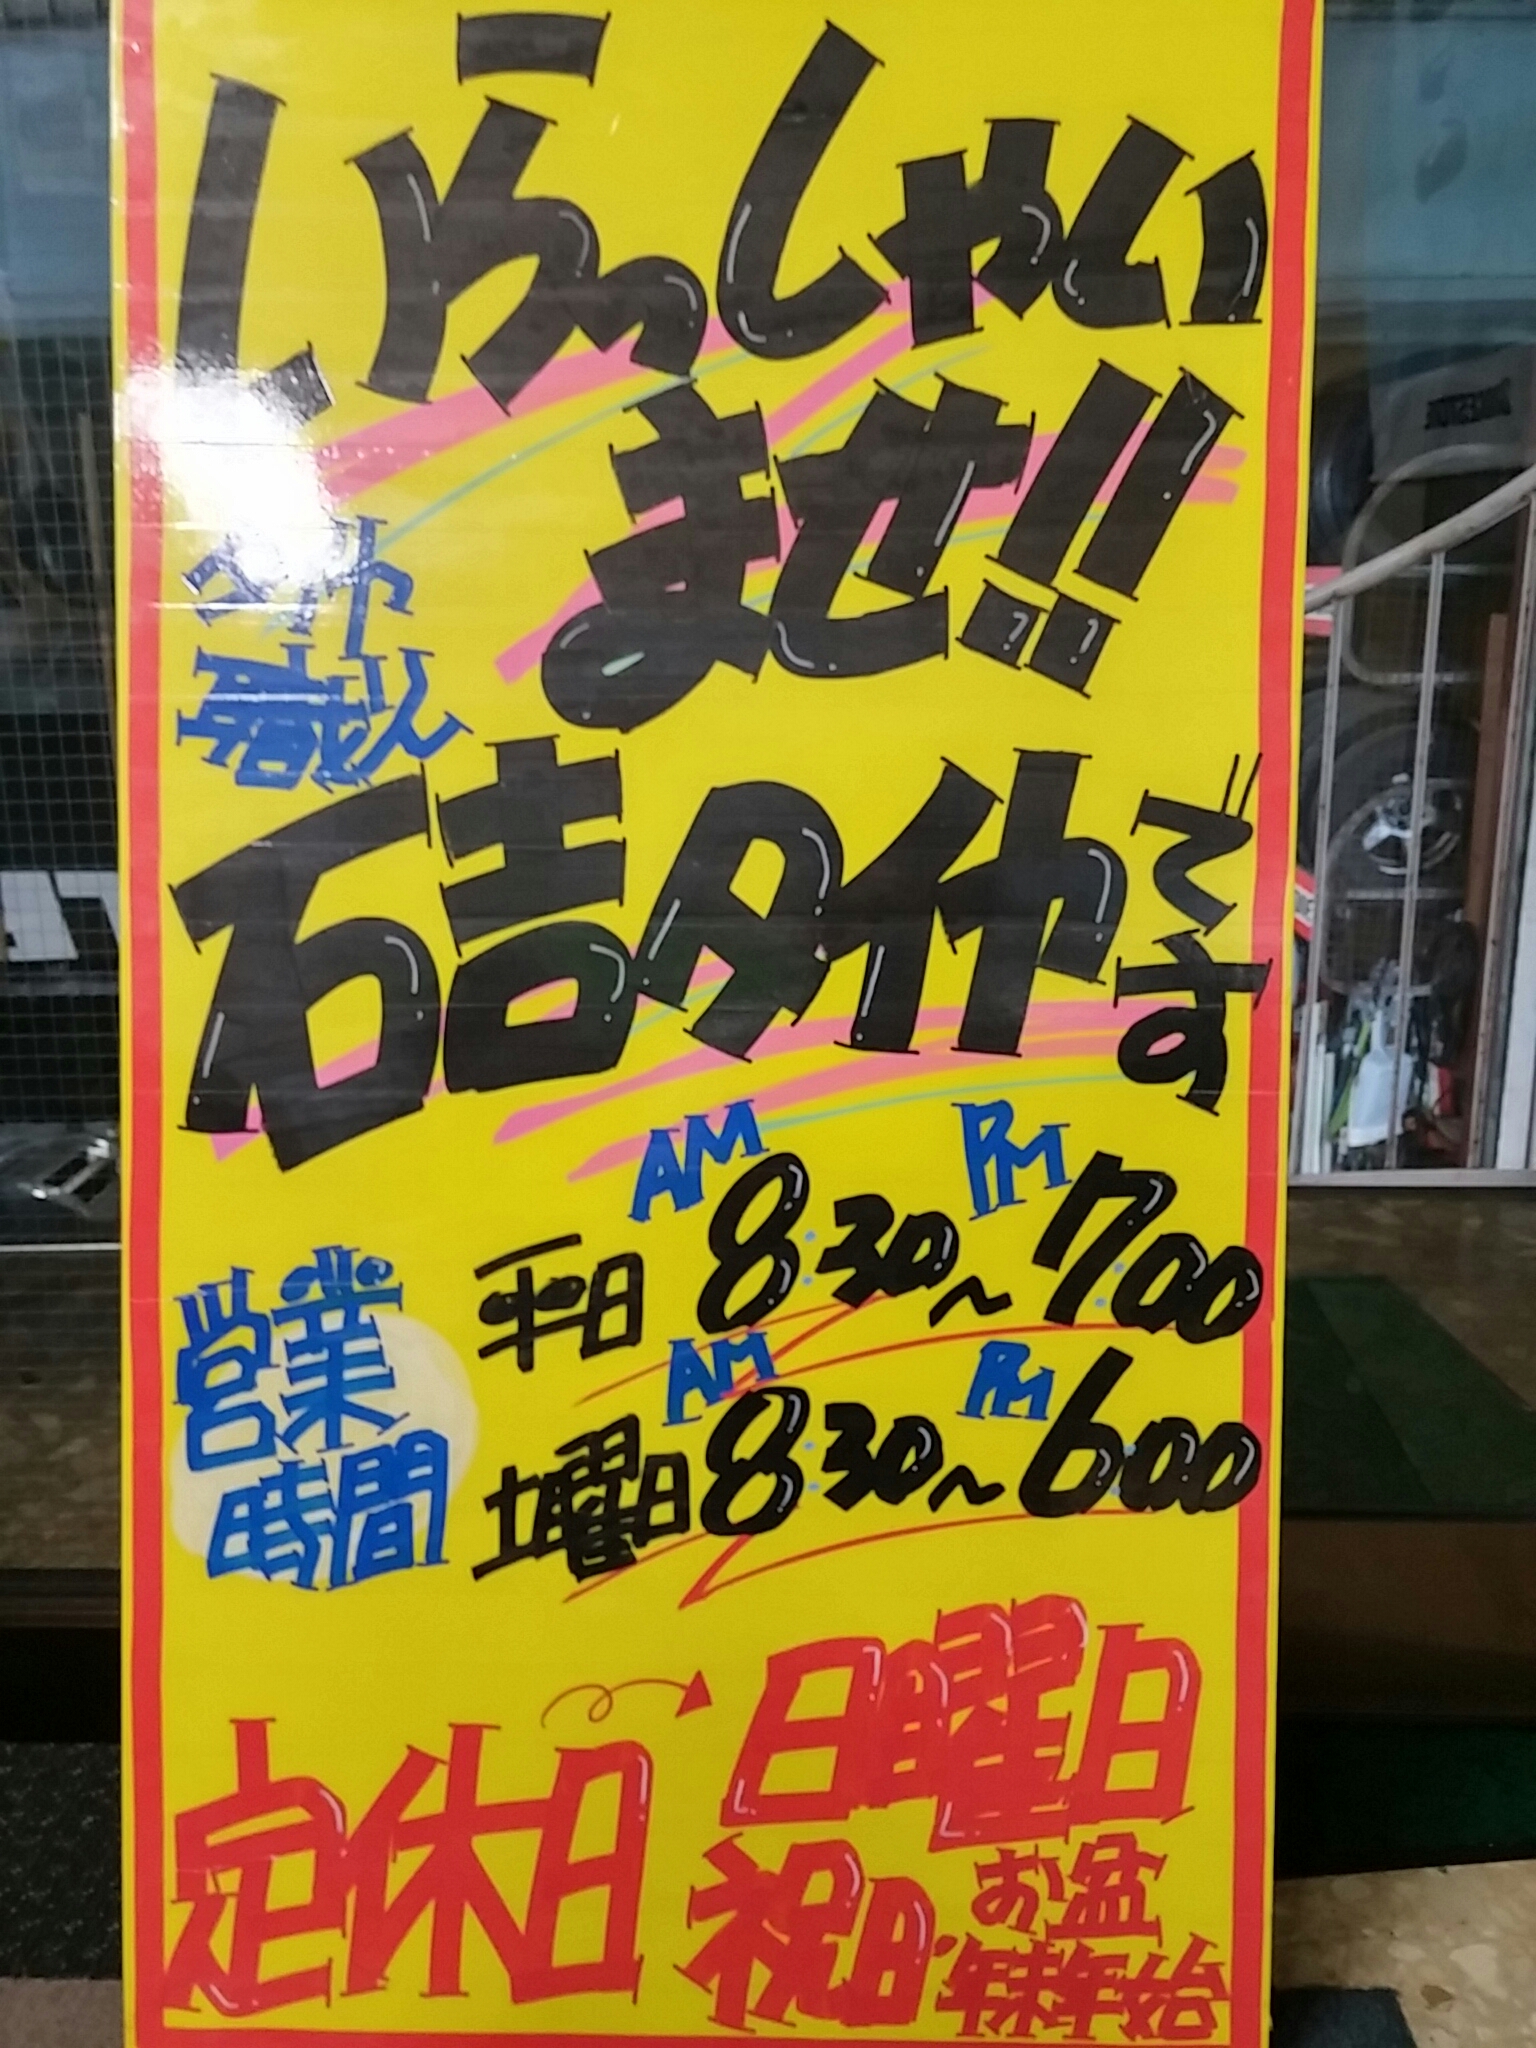 いらっしゃい
ませ!!
タイヤ
職人
石吉タイヤです
営業
時間
平日 AM 8:30~PM 7:00
土曜日 AM 8:30~PM 6:00
定休日
日曜日
祝日
お盆
年末年始